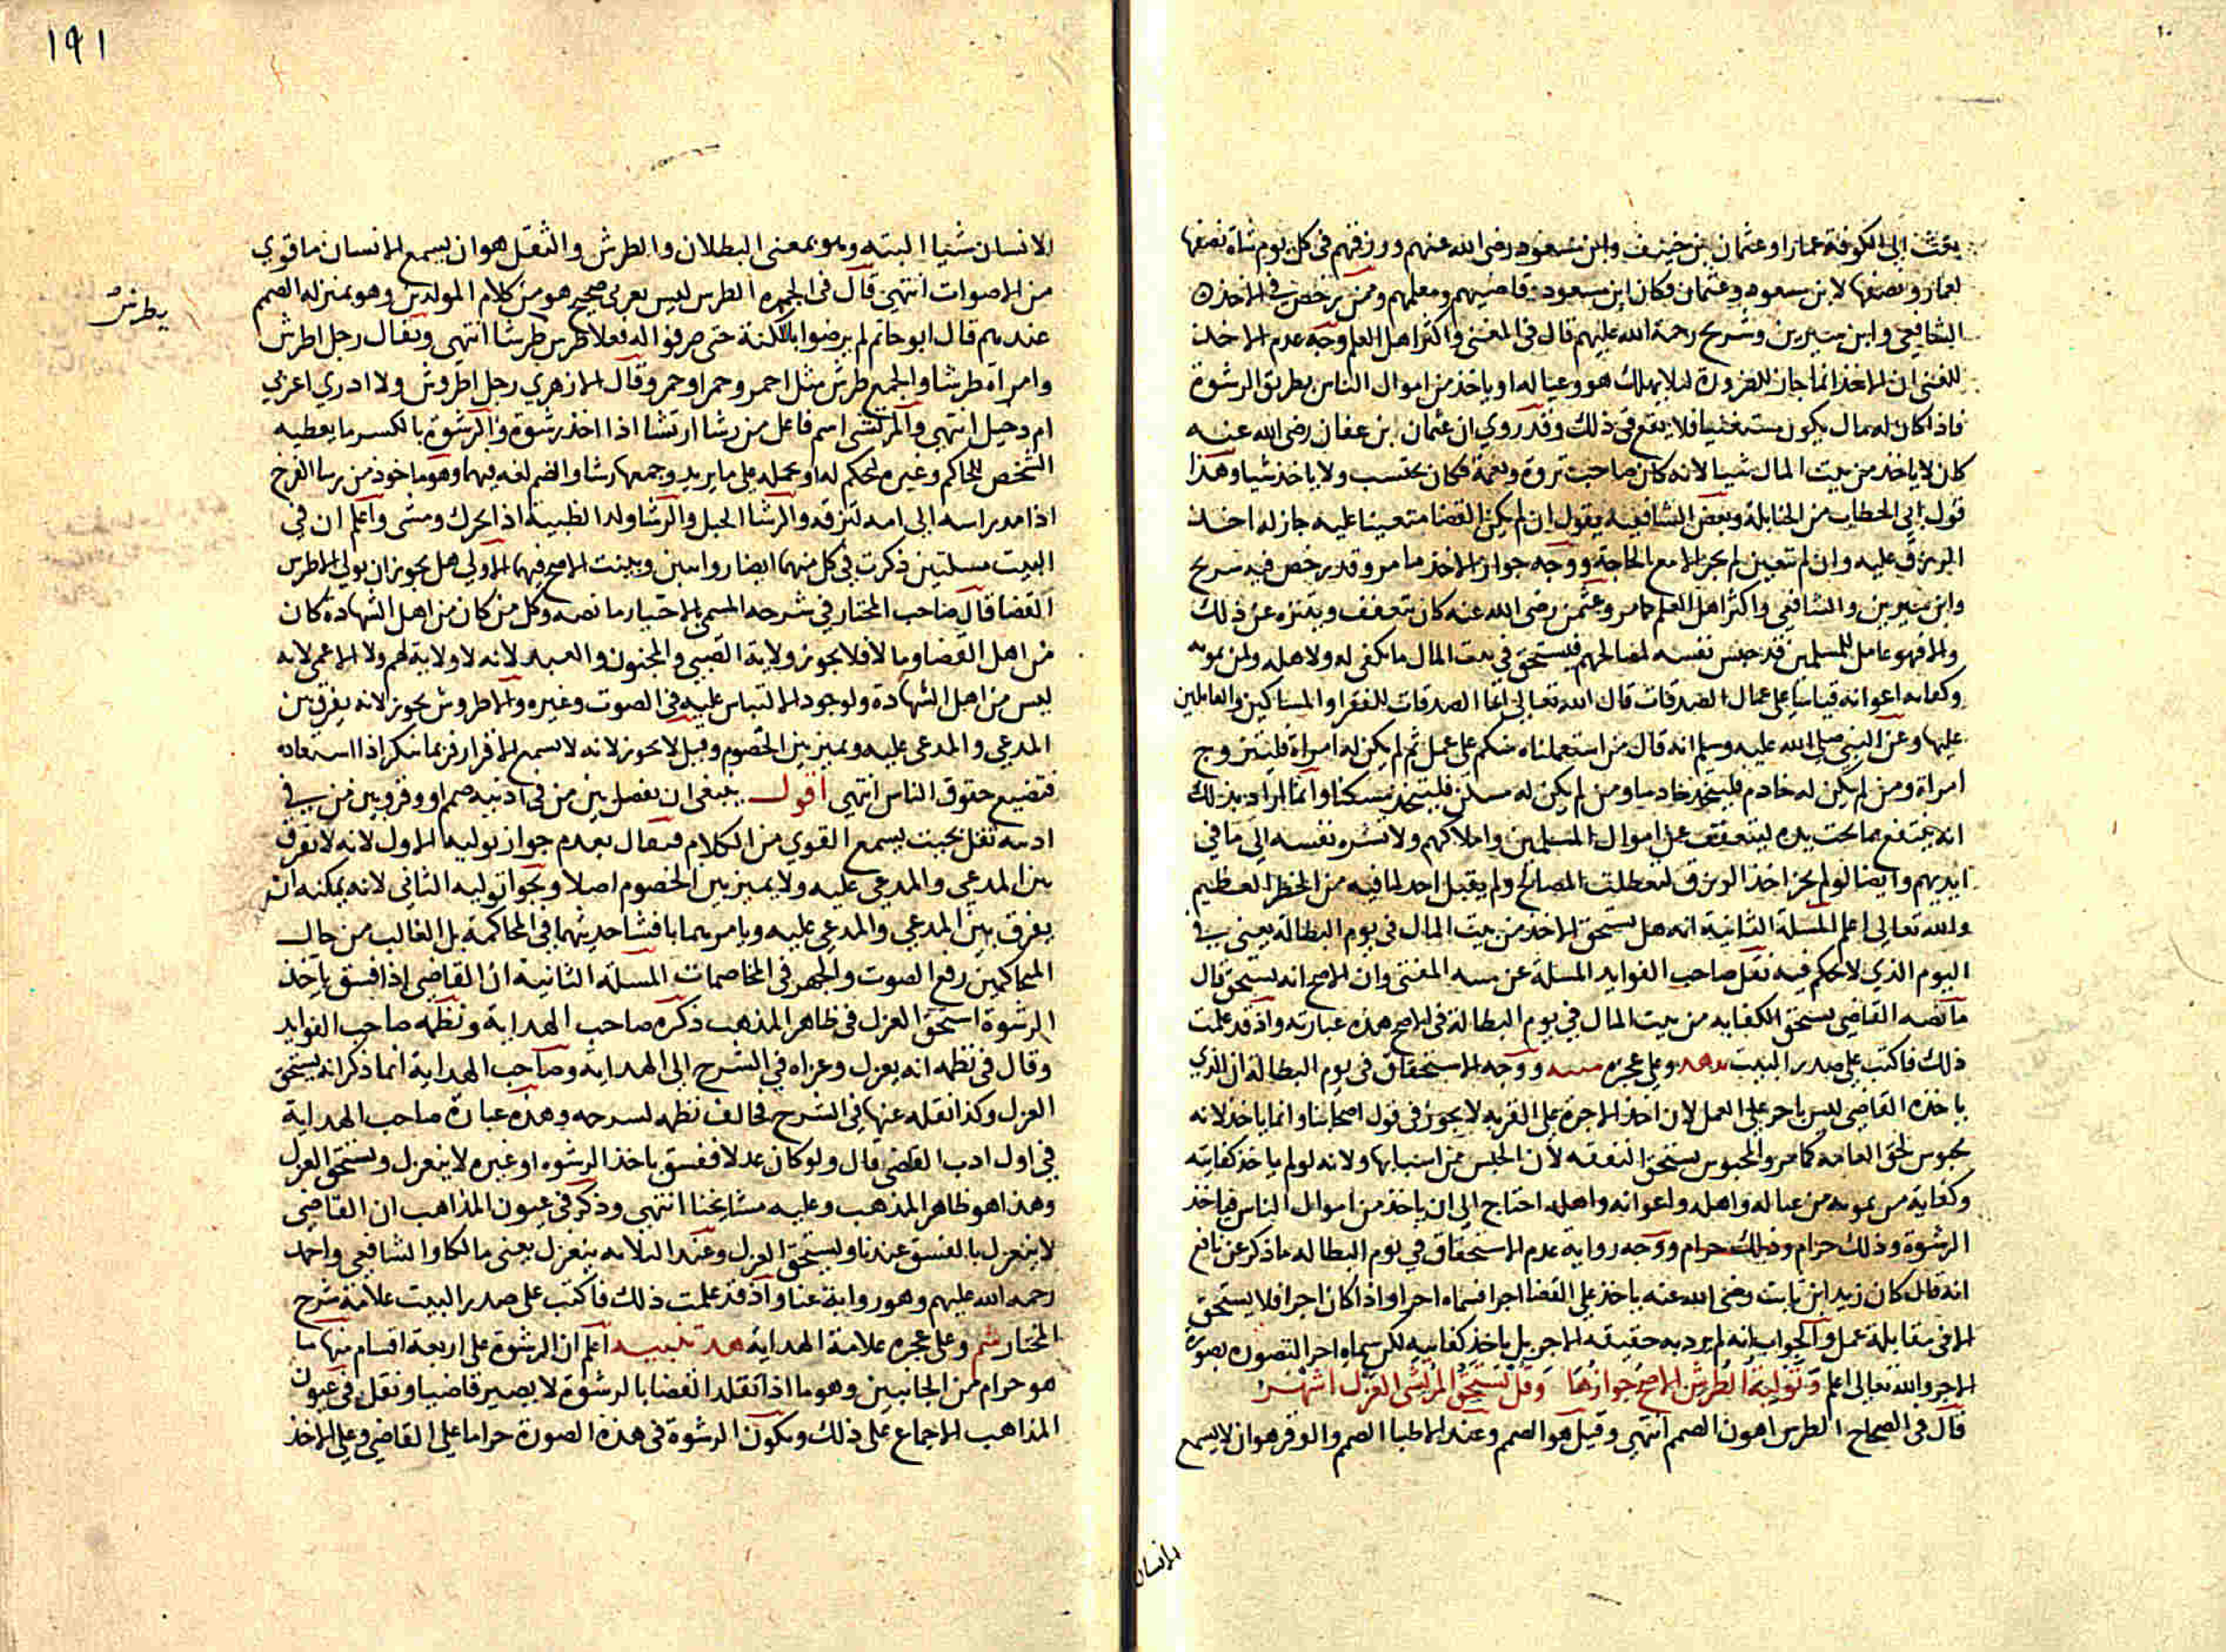 بعث إلى الكوفة عمارا وعثمان بن حنيف وابن مسعود رضى الله عنهم ورزقهم في كل يوم شاة نصفها
لعمار ونصفها لابن مسعود وعثمان فكان ابن مسعود قاضيهم ومعلمهم وممن يرخص في الاخذ
الشافعي وابن سيرين وشريح رحمة الله عليهم قال في المغنى واكثر اهل العلم وجه عدم الاخذ
للغنى ان الاخذ انما جاز للضرورة لئلا يهلك هو وعياله او ياخذ من اموال الناس بطريق الرشوة
فاذا كان له مال يكون مستغنيا فلا يقع في ذلك وقد روي ان عثمان بن عفان رضى الله عنه
كان لا ياخذ من بيت المال شيا لانه كان صاحب ثروة ونعمة فكان يحتسب ولا ياخذ شيا وهذا
قول ابي الخطاب من الحنابلة وبعض الشافعيه يقول ان لم يكن القضا متعينا عليه جاز له اخذ
الرزق عليه وان لم تعين لم يجز الا مع الحاجة ووجه جواز الاخذ ما مر وقد يرخص فيه شريح
وابن سيرين والشافعي واكثر اهل العلم كما مر وعثمن رضى الله عنه كان يتعفف ويتنزه عن ذلك
والا فهو عامل للمسلمين قد حبس نفسه لمصالحهم فيستحق في بيت المال ما يكفى له ولاهله ولمن يمونه
وكفايه اعوانه قياسا على عمال الصدقات قال الله تعالى انما الصدقات للفقرا والمساكين والعاملين
عليها وعن النبي صلى الله عليه وسلم انه قال من استعملناه منكم على عمل ثم لم يكن له امراة فليتزوج
امراة ومن لم يكن له خادم فليتخذ خادما ومن لم يكن له مسكن فليتخذ مسكنا وانما المراد بذلك
انه ينتفع بما تحت يده ليتعفف عن اموال المسلمين واملاكهم ولا تشره نفسه الى ما في
ايديهم وايضا لو لم يجز اخذ الرزق لتعطلت المصالح ولم يقبل احد لما فيه من الخطر العظيم
والله تعالى اعلم المسلة الثانية انه هل تستحق الاخذ من بيت المال في يوم البطالة يعنى في
اليوم الذي لا حكم فيه نقل صاحب الفوايد المسلة عن منية المفتى وان الاصح انه يستحق قال
ما نصه القاضي يستحق الكفايه من بيت المال في يوم البطالة في الاصح هذه عبارته واذ قد علمت
ذلك فاكتب على صدر البيت وعلى عجزه منيه ووجه الاستحقاق في يوم البطالة ان الذي
ياخذه القاضي ليس باجر على العمل لان اخذ الاجرة على القربه لا يجوز في قول اصحابنا وانما ياخذ لانه
محبوس لحق العامه كما مر والمحبوس يستحق النفقه لان الحبس من اسبابها ولانه لو لم ياخذ كفايته
وكفاية من يمونه من عياله واهله واعوانه واهله احتاج الى ان ياخذ من اموال الناس فياخذ
الرشوة وذلك حرام وذلك حرام ووجه رواية عدم الاستحقاق في يوم البطاله ما ذكر عن نافع
انه قال كان زيد ابن ثابت رضى الله عنه ياخذ على القضا اجرا فسماه اجرا واذا كان اجرا فلا يستحق
الا في مقابلة عمل والجواب انه لم يرد به حقيقه الاجر بل ياخذ كفايته لكن سماه اجرا لتصوره بصورة
الاجر والله تعالى اعلم وتولية الطرش الاصح جوازها وقل تستحق المرتشى العزل اشهر
قال في الصحاح الطرس اهون الصمم انتهى وقيل هو الصمم وعند الاطبا الصمم والوقر هو ان لا يسمع
الانسان
١٩١
الانسان شيا البته وهو بمعنى البطلان والطرش والثقل هو ان يسمع الانسان ما قوي
من الاصوات انتهى قال في الجمهره الطرس ليس بعربى صحيح هو من كلام المولدين وهو بمنزله الصمم
عندهم قال ابو حاتم لم يرضوا باللكنة حتى صرفوا له فعلا طرش طرشا انتهى ويقال رجل اطرش
وامراة طرشا والجمع طرش مثل احمر وحمرا وحمر وقال الازهري رجل اطروش ولا ادري اعربي
ام دخيل انتهى والمرتشى اسم فاعل من رشا ارتشا اذا اخذ رشوة والرشوة بالكسر ما يعطيه
الشخص للحاكم وغيره ليحكم له او يحمله على ما يريد وجمعها رشا والضم لغه فيها وهو ماخوذ من رسا الفرخ
اذا مد راسه الى امه لتزقه والرشا الحبل والرشا ولد الظبية اذا تحرك ومشى واعلم ان في
البيت مسلتين ذكرت في كل منهما ايضا روايتين وبينت الاصح فيهما الاولى هل يجوز ان يولى الاطرس
القضا قال صاحب المختار في شرحه المسمى بالاختيار ما نصه وكل من كان من اهل الشهادة كان
من اهل القضا وما لا فلا يجوز ولاية الصبي والمجنون والعبد لانه لا ولاية لهم ولا الاعمى لانه
ليس من اهل الشهادة ولوجود الالتباس عليه في الصوت وغيره والاطروش يجوز لانه يفرق بين
المدعي والمدعى عليه ويميز بين الخصوم وقيل لا يجوز لانه لا يسمع الاقرار فربما ينكر اذا استعاده
فتضيع حقوق الناس انتهى اقول ينبغى ان يفصل بين من في اذنيه صمم او وقر وبين من في
اذنيه ثقل بحيث يسمع القوي من الكلام فيقال بعدم جواز توليه الاول لانه لا يفرق
بين المدعي والمدعى عليه ولا يميز بين الخصوم اصلا وبجواز توليه الثاني لانه يمكنه ان
يفرق بين المدعي والمدعى عليه ويامرهما بافشا حديثهما في المحاكمة بل الغالب من حال
المحاكمين رفع الصوت والجهر في المخاصمات المسلة الثانية ان القاضي اذا فسق باخذ
الرشوة استحق العزل في ظاهر المذهب ذكره صاحب الهداية ونظمه صاحب الفوايد
وقال في نظمه انه يعزل وعزاه في الشرح الى الهدايه وصاحب الهداية انما ذكر انه يستحق
العزل وكذا نقله عنها في الشرح فخالف نظمه لسرحه وهذه عبارة صاحب الهداية
في اول ادب القاضى قال ولو كان عدلا ففسق باخذ الرشوه او غيره لا ينعزل ويستحق العزل
وهذا هو ظاهر المذهب وعليه مشايخنا انتهى وذكر في عيون المذاهب ان القاضي
لا ينعزل بالفسق عندنا ويستحق العزل وعند الثلاثه ينعزل يعنى مالكا والشافعي واحمد
رحمه الله عليهم وهو رواية عنا واذ قد علمت ذلك فاكتب على صدر البيت علامة شرح
المختار شم وعلى عجزه علامة الهداية هد تنبيه اعلم ان الرشوة على اربعة اقسام منها ما
هو حرام من الجانبين وهو ما اذا تقلد القضا بالرشوة لا يصير قاضيا ونقل في عيون
المذاهب الاجماع على ذلك ويكون الرشوة في هذه الصورة حراما على القاضي وعلى الاخذ
يطرش